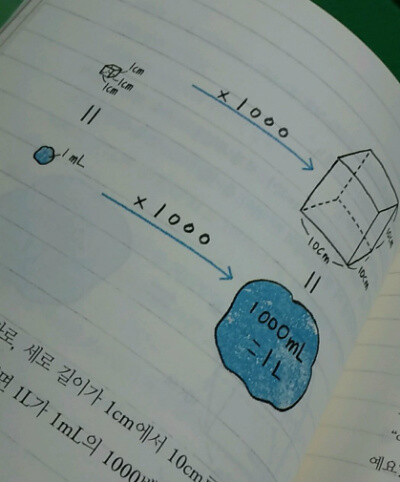 1cm
1cm
1cm
×1000
=
1mL
×1000
10cm
10cm
10cm
=
1000mL
=1L
세로 길이가 1cm에서 10cm
1L가 1mL의 1000
예요